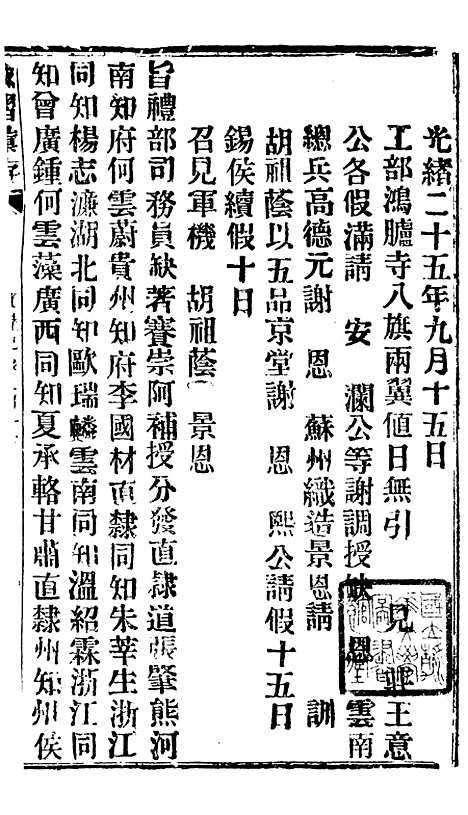 光緒二十五年九月十五日
工部鴻臚寺八旗兩翼値日無引　見　王意
公各假滿請　安　瀾公等謝調授缺　恩　雲南
總兵高德元謝　恩　蘇州織造景恩請　訓
胡祖蔭以五品京堂謝　恩　熙公請假十五日
錫侯續假十日
召見軍機　胡祖蔭　景恩
旨禮部司務員缺著賽崇阿補授分發直隷道張肇熊河
南知府何雲蔚貴州知府李國材直隷同知朱莘生浙江
同知楊志濂湖北同知歐瑞麟雲南同知溫紹霖浙江同
知曾廣鍾何雲藻廣西同知夏承輅甘肅直隷州知州侯